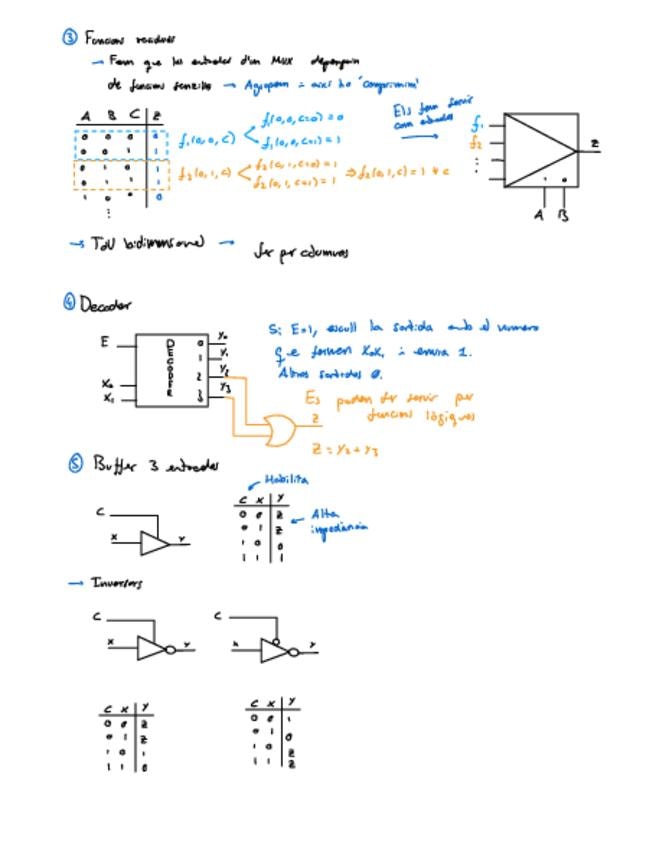 ③ Funcions residuals
→ Fem que les entrades d'un MUX depenguin
de funcions senzilles → Agrupem i així ho "comprimim"
A B C Z
0 0 0 0
0 0 1 1
0 1 0 1
0 1 1 1
1 0 0 0
⋮
f₁(0,0,C)
f₁(0,0,C=0)=0
f₁(0,0,C=1)=1
f₂(0,1,C)
f₂(0,1,C=0)=1
f₂(0,1,C=1)=1
⇒ f₂(0,1,C)=1 ∀ C
Els fem servir
com entrades
f₁
f₂
⋮
1 0
Z
A B
→ TdV bidimensional → fer per columnes
④ Decoder
E
X₀
X₁
DECODER
0 Y₀
1 Y₁
2 Y₂
3 Y₃
Z
Si E=1, escull la sortida amb el número
que formen X₀X₁ i envia 1.
Altres sortides 0.
Es poden fer servir per
funcions lògiques
Z = Y₂+Y₃
⑤ Buffer 3 entrades
C
X
Y
Habilita
C X Y
0 0 Z
0 1 Z
1 0 0
1 1 1
← Alta
impedància
→ Inversors
C
X
Y
C
Y
C X Y
0 0 Z
0 1 Z
1 0 1
1 1 0
C X Y
0 0 1
0 1 0
1 0 Z
1 1 Z